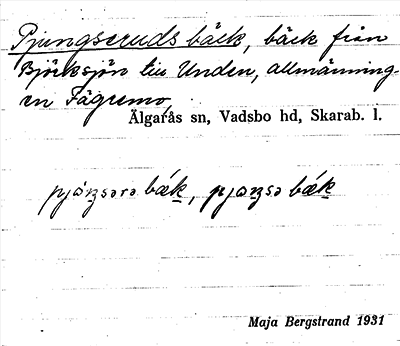 Pjungseruds bäck, bäck från
Björksjön till Unden, allmänning-
en Fägremo,
Älgarås sn, Vadsbo hd, Skarab. l.
pjɷŋsərə bǽk, pjɷŋsə bǽk
Maja Bergstrand 1931